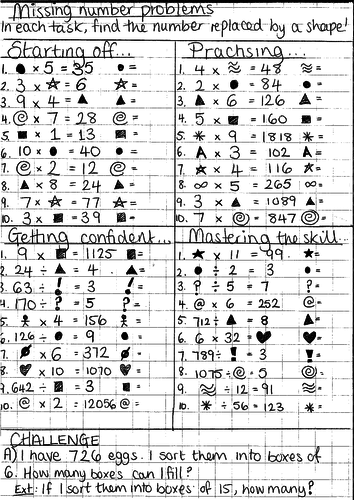 Missing number problems
In each task, find the number replaced by a shape!
Starting off...
1. ● × 5 = 35 ● =
2. 3 × ☆ = 6 ☆ =
3. 9 × 4 = ▲ ▲ =
4. @ × 7 = 28 @ =
5. ■ × 1 = 13 ■ =
6. 10 × ● = 40 ● =
7. @ × 2 = 12 @ =
8. ▲ × 8 = 24 ▲ =
9. 7 × ☆ = 77 ☆ =
10. 3 × ■ = 39 ■ =
Practising...
1. 4 × ≈ = 48 ≈ =
2. 2 × ● = 84 ● =
3. ▲ × 6 = 126 ▲ =
4. 5 × ■ = 160 ■ =
5. * × 9 = 1818 * =
6. A × 3 = 102 A =
7. ☆ × 4 = 116 ☆ =
8. ∞ × 5 = 265 ∞ =
9. 3 × ▲ = 1089 ▲ =
10. 7 × @ = 847 @ =
Getting confident...
1. 9 × ■ = 1125 ■ =
2. 24 ÷ ▲ = 4 ▲ =
3. 63 ÷ ! = 3 ! =
4. 170 ÷ ? = 5 ? =
5. 웃 × 4 = 156 웃 =
6. 126 ÷ ● = 9 ● =
7. ø × 6 = 372 ø =
8. ♥ × 10 = 1070 ♥ =
9. 642 ÷ ■ = 3 ■ =
10. @ × 2 = 12056 @ =
Mastering the skill...
1. ★ × 11 = 99 ★ =
2. ● ÷ 2 = 3 ● =
3. ? ÷ 5 = 7 ? =
4. @ × 6 = 252 @ =
5. 712 ÷ ▲ = 8 ▲ =
6. 6 × 32 = ♥ ♥ =
7. 789 ÷ ! = 3 ! =
8. 1075 ÷ @ = 5 @ =
9. ≈ ÷ 12 = 91 ≈ =
10. * ÷ 56 = 123 * =
CHALLENGE
A) I have 726 eggs. I sort them into boxes of
6. How many boxes can I fill?
Ext: If I sort them into boxes of 15, how many?